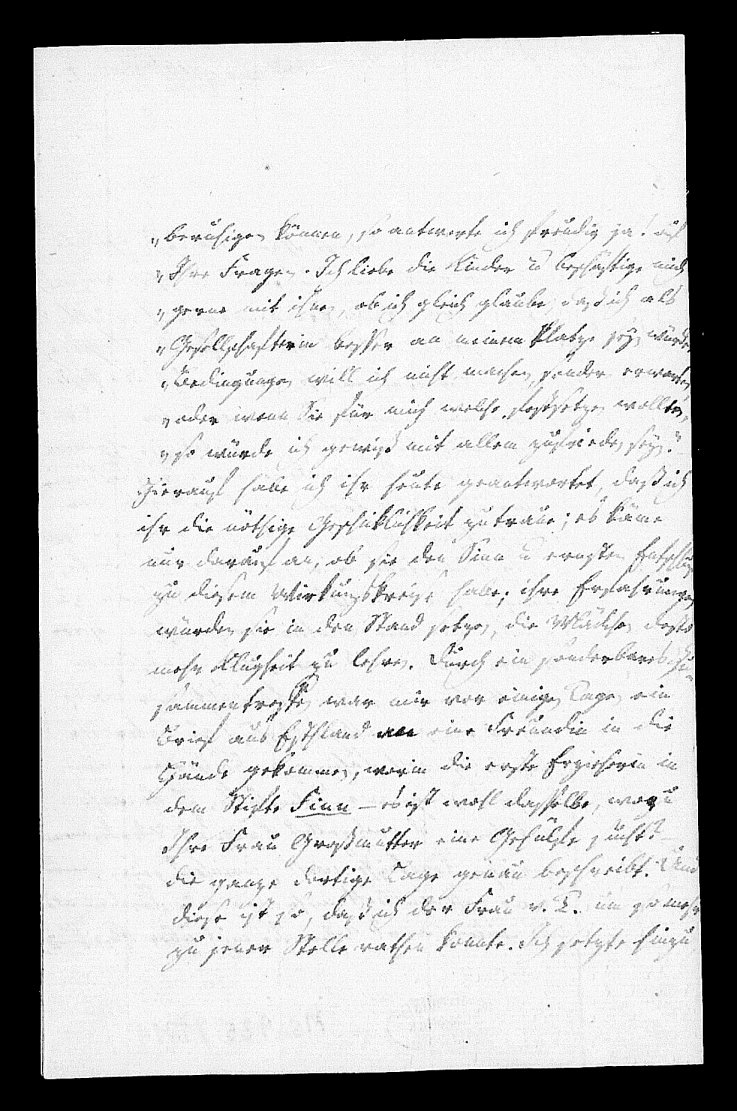 „beruhigen können, so antworte ich freudig ja. auf
„Ihre Fragen. Ich liebe die Kinder u beschäftige mich
„gerne mit ihnen, ob ich gleich glaube daß ich als
„Gesellschafterin besser an meinem Platze seyn würde,
„Bedingungen will ich nicht machen, sondern erwarten
„oder wenn Sie für mich welche festsetzen wollten,
„so würde ich gewiß mit allem zufrieden seyn.“
Hierauf habe ich ihr heute geantwortet, daß ich
ihr die nöthige Geschiklichkeit zutraue; es käme
nur darauf an, ob sie den Sinn u ernsten Entschluß
zu diesem Wirkungskreise habe; ihre Erfahrungen
würden sie in den Stand setzen, die Mädchen desto
mehr Klugheit zu lehren. Durch ein sonderbares Zu-
sammentreffen war mir vor einigen Tagen ein
Brief aus Ehstland an eine Freundin in die
Hände gekommen, worin die erste Erzieherin in
dem Stifte Finn – es ist wohl dasselbe, wozu
Ihre Frau Großmutter eine Gehülfin sucht? –
die ganze dortige Lage genau beschreibt. Und
diese ist so, daß ich der Frau v. T. um so mehr
zu jener Stelle rathen konnte. Ich setzte hinzu